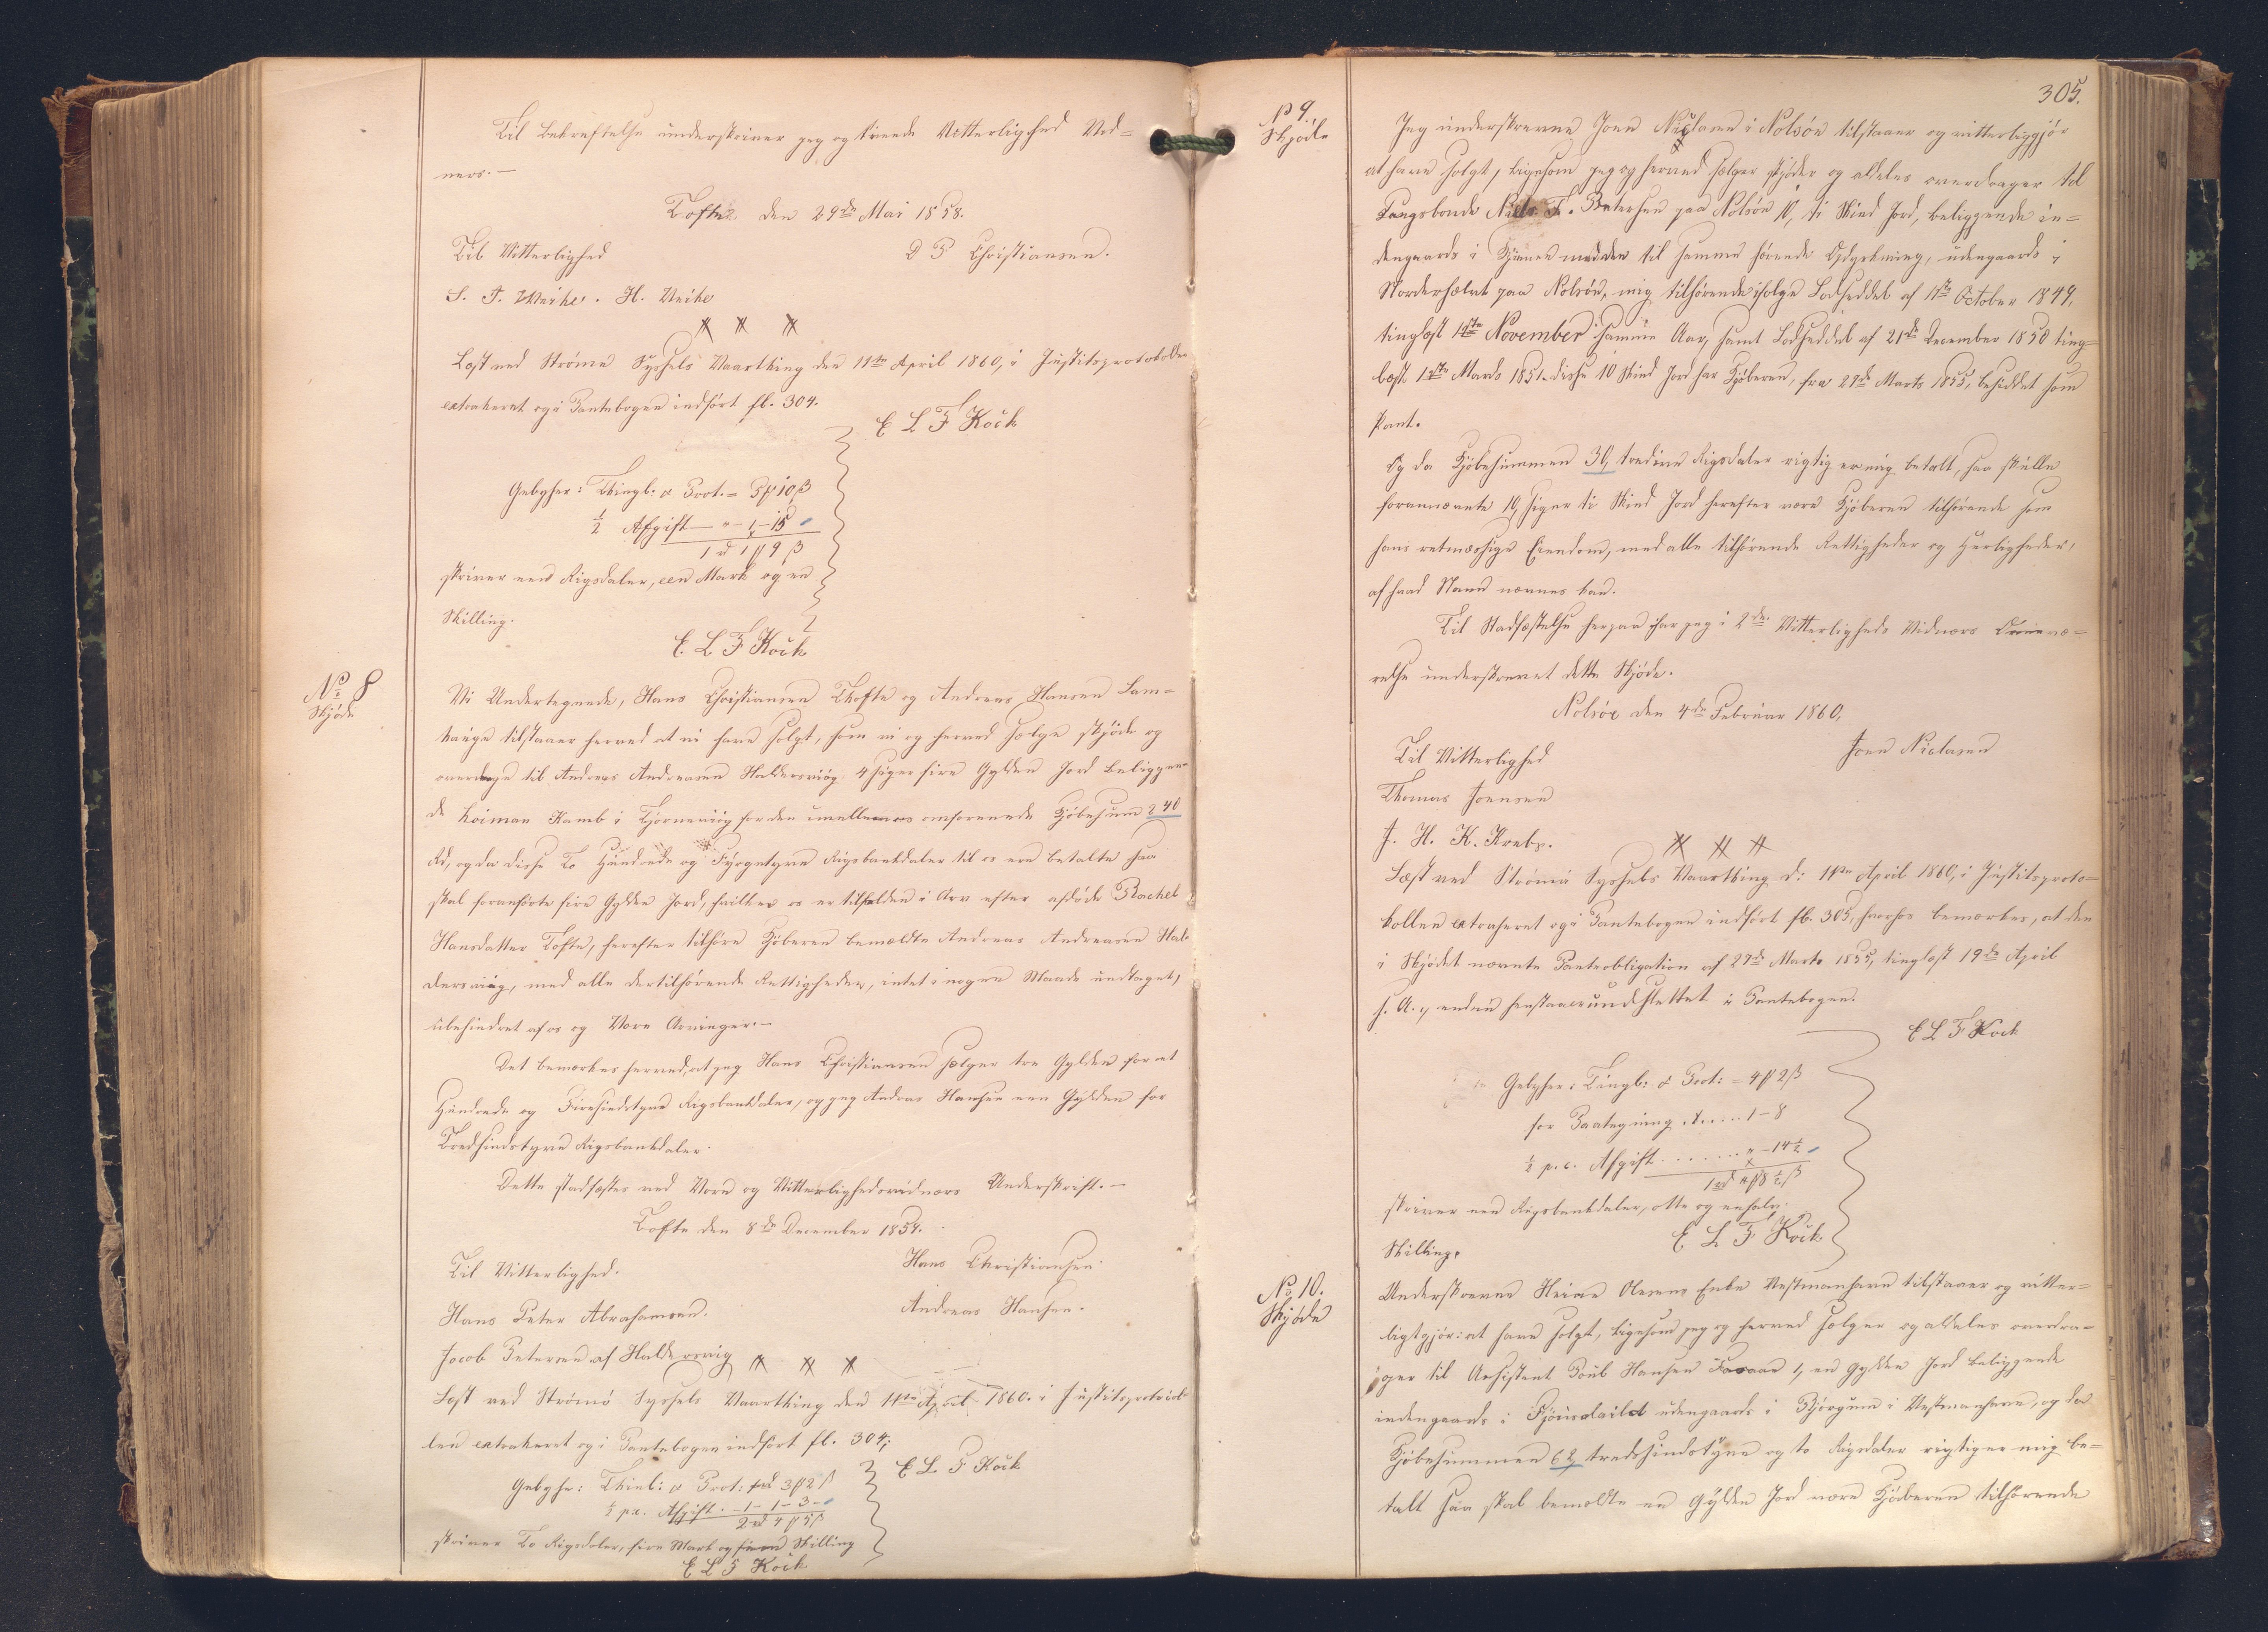 Til Bekræftelse underskriver jeg og tvende Vitterlighed Vid=
ners.-
Tofte den 29de Mai 1858.
Til Vitterlighed D P Christiansen.
S. J. Weihe. H. Weihe
Læst ved Strömö Syssels Vaarthing den 11te April 1860, i Justitsprotokollen
extraheret og i Pantebogen indfört fl. 304.
E L F Kock
Gebyhr: Thingl: & Prot. = 5 ꝳ 10 ß
½ Afgift - " - 1 - 15
1 rd 1 ꝳ 9 ß
skriver een Rigsdaler, een Mark og en
Skilling.
E. L F Kock
No 8
Skjöde
Vi Undertegnede, Hans Christiansen Thofte og Andreas Hansen Lam=
hauge tilstaaer herved at vi have solgt, som vi og herved sælge skjöde og
overdrage til Andreas Andreasen Haldersviig 4 siger fire Gylden Jord beliggen=
de heiman Kamb i Tjörneviig for den imellem os omforenede Kjöbesum 240
Rd, og da disse To Hundrede og Fyrgetyve Rigsbankdaler til os ere betalte saa
skal foranförte fire Gylden Jord, hvilke os er tilfalden i Arv efter afdöde Rachel
Hansdatter Tofte, herefter tilhöre Kjöberen bemeldte Andreas Andreasen Hal=
dersviig, med alle dertilhörende Rettigheder, intet i nogen Maade undtaget,
ubehindret af os og Vore Arvinger.-
Det bemærkes herved, at jeg Hans Christiansen sælger tre Gylden for et
Hundrede og Firesindstyve Rigsbankdaler, og jeg Andras Hansen een Gylden for
Tredsindstyve Rigsbankdaler.
Dette stadfæstes ved Vore og Vitterlighedsvidners Underskrift.-
Tofte den 8de December 1854.
Til Vitterlighed. Hans Christiansen
Hans Peter Abrahamsen. Andreas Hansen.
Jacob Petersen af Haldersvig
Læst ved Strömö Syssels Vaarthing den 11te April 1860. i Justitsprotocol=
len extraheret og i Pantebogen indfört fl. 304;
E L F Kock
Gebyhr: Thinl: & Prot: 3 ꝳ 2 ß
½ pc. Afgift. - 1 - 1 - 3 -
2 rd 4 ꝳ 5 ß
skriver To Rigsdaler, fire Mark og fem Skilling
E L F Kock
305.
No 9.
Skjöde
Jeg underskrevne Joen Niclasen i Nolsöe tilstaaer og vitterliggjör
at have solgt, ligesom jeg og herved sælger skjöder og aldeles overdrager til
Kongsbonde Niels F. Petersen paa Nolsöe 10, ti Skind Jord, beliggende in=
dengaards i med den til samme hörende Opdyrkning, udengaards i
Norderhalvt paa Nolsöe, mig tilhörende ifölge Lodseddel af 17de October 1849,
tinglæst 14de November samme Aar, samt Lodseddel af 21de December 1850 ting=
læst 1ste Marts 1851. disse 10 Skind Jord har Kjöberen, fra 29de Marts 1855, besiddet som
Pant.
Og da Kjöbesummen 30, tredive Rigsdaler rigtig er mig betalt, saa skulle
forannævnte 10, siger ti Skind Jord herefter være Kjöberen tilhörende som
hans retmæssige Eiendom, med alle tilhörende Rettigheder og Herligheder,
af hvad Navn nævnes kan.
Til Stadfæstelse herpaa har jeg i 2de Vitterligheds Vidners Overvæ=
relse underskrevet dette Skjöde.
Nolsöe den 4de Februar 1860,
Til Vitterlighed Joen Niclasen
Thomas Joensen
J. H. K. Krebs.
Læst ved Strömö Syssels Vaarthing d: 11te April 1860, i Justitsproto=
kollen extraheret og i Pantebogen indfört fl. 305, hvorhos bemærkes, at den
i Skjödet nævnte Panteobligation af 29de Marts 1855, tinglæst 19de April
s. A., endnu henstaaer uudslettet i Pantebogen.
E L F Kock
Gebyhr: Tingl: & Prot: = 4 ꝳ 2 ß
for Paategning . . . . . 1 - 8
½ p.c. Afgift . . . . . . . " - 14½
1 rd " ꝳ 8½ ß
skriver een Rigsbankdaler, otte og enhalv
Skilling.
E L F Kock
No 10.
Skjöde
Underskrevne Heine Olesens Enke Vestmanhavn tilstaaer og vitter=
ligtgjör: at have solgt, ligesom jeg og herved sælger og aldeles overdra=
ger til Assistent Poul Hansen 1, en Gylden Jord beliggende
indengaards i udengaards i i Vestmanhavn, og da
Kjöbesummen 62 tredssindstyve og to Rigsdaler rigtig er mig be=
talt saa skal bemeldte en Gylden Jord være Kjöberen tilhörende